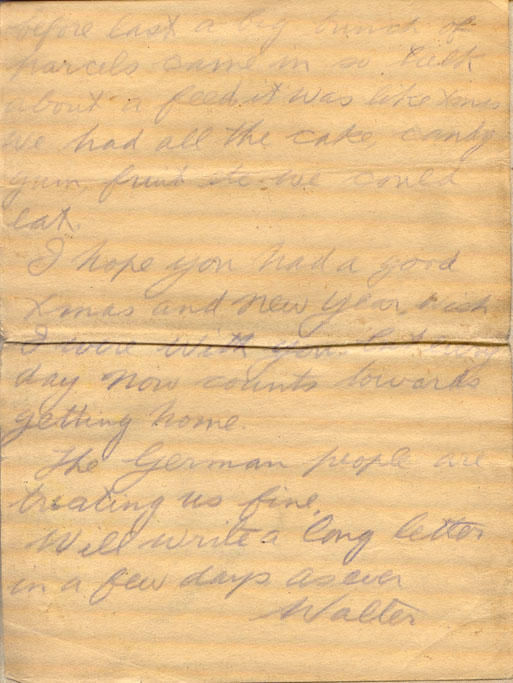 before last a big bunch of
parcels came in so talk
about a feed it was like Xmas
we had all the cake, candy
gum, fruit etc we could
eat.
I hope you had a good
Xmas and New Year wish
I were with you. but every
day now counts towards
getting home.
The German people are
treating us fine.
Will write a long letter
in a few days as ever
Walter